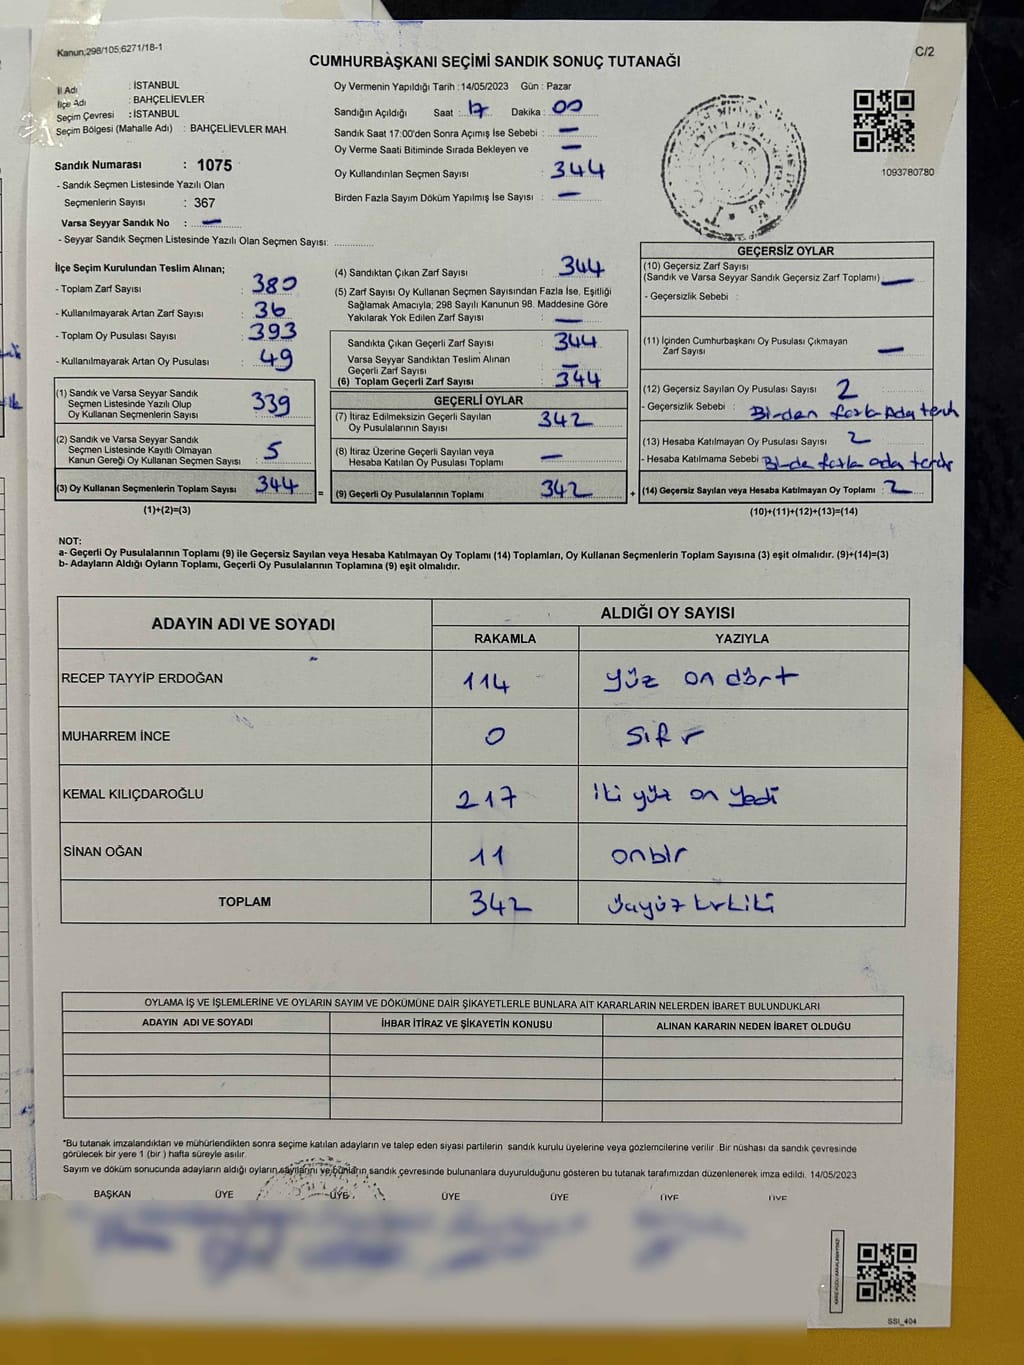 Kanun;298/105;6271/18-1
C/2
CUMHURBAŞKANI SEÇİMİ SANDIK SONUÇ TUTANAĞI
İl Adı : İSTANBUL
İlçe Adı : BAHÇELİEVLER
Seçim Çevresi : İSTANBUL
Seçim Bölgesi (Mahalle Adı) : BAHÇELİEVLER MAH.
Sandık Numarası : 1075
- Sandık Seçmen Listesinde Yazılı Olan
Seçmenlerin Sayısı : 367
Varsa Seyyar Sandık No : —
- Seyyar Sandık Seçmen Listesinde Yazılı Olan Seçmen Sayısı: ..............
Oy Vermenin Yapıldığı Tarih : 14/05/2023 Gün : Pazar
Sandığın Açıldığı Saat : 17 Dakika : 00
Sandık Saat 17:00'den Sonra Açımış İse Sebebi : —
Oy Verme Saati Bitiminde Sırada Bekleyen ve —
Oy Kullandırılan Seçmen Sayısı : 344
Birden Fazla Sayım Döküm Yapılmış İse Sayısı : —
1093780780
İlçe Seçim Kurulundan Teslim Alınan;
- Toplam Zarf Sayısı : 380
- Kullanılmayarak Artan Zarf Sayısı : 36
- Toplam Oy Pusulası Sayısı : 393
- Kullanılmayarak Artan Oy Pusulası : 49
(1) Sandık ve Varsa Seyyar Sandık
Seçmen Listesinde Yazılı Olup
Oy Kullanan Seçmenlerin Sayısı : 339
(2) Sandık ve Varsa Seyyar Sandık
Seçmen Listesinde Kayıtlı Olmayan
Kanun Gereği Oy Kullanan Seçmen Sayısı : 5
(3) Oy Kullanan Seçmenlerin Toplam Sayısı : 344
(1)+(2)=(3)
(4) Sandıktan Çıkan Zarf Sayısı : 344
(5) Zarf Sayısı Oy Kullanan Seçmen Sayısından Fazla İse, Eşitliği
Sağlamak Amacıyla; 298 Sayılı Kanunun 98. Maddesine Göre
Yakılarak Yok Edilen Zarf Sayısı : —
Sandıkta Çıkan Geçerli Zarf Sayısı : 344
Varsa Seyyar Sandıktan Teslim Alınan
Geçerli Zarf Sayısı : —
(6) Toplam Geçerli Zarf Sayısı : 344
GEÇERLİ OYLAR
(7) İtiraz Edilmeksizin Geçerli Sayılan
Oy Pusulalarının Sayısı : 342
(8) İtiraz Üzerine Geçerli Sayılan veya
Hesaba Katılan Oy Pusulası Toplamı : —
= (9) Geçerli Oy Pusulalarının Toplamı : 342 +
GEÇERSİZ OYLAR
(10) Geçersiz Zarf Sayısı
(Sandık ve Varsa Seyyar Sandık Geçersiz Zarf Toplamı) : —
- Geçersizlik Sebebi :
(11) İçinden Cumhurbaşkanı Oy Pusulası Çıkmayan
Zarf Sayısı : —
(12) Geçersiz Sayılan Oy Pusulası Sayısı : 2
- Geçersizlik Sebebi : Birden fazla Aday terch
(13) Hesaba Katılmayan Oy Pusulası Sayısı : 2
- Hesaba Katılmama Sebebi : Birde fazla aday terch
(14) Geçersiz Sayılan veya Hesaba Katılmayan Oy Toplamı : 2
(10)+(11)+(12)+(13)=(14)
NOT:
a- Geçerli Oy Pusulalarının Toplamı (9) ile Geçersiz Sayılan veya Hesaba Katılmayan Oy Toplamı (14) Toplamları, Oy Kullanan Seçmenlerin Toplam Sayısına (3) eşit olmalıdır. (9)+(14)=(3)
b- Adayların Aldığı Oyların Toplamı, Geçerli Oy Pusulalarının Toplamına (9) eşit olmalıdır.
ADAYIN ADI VE SOYADI
ALDIĞI OY SAYISI
RAKAMLA YAZIYLA
RECEP TAYYİP ERDOĞAN 114 yüz on dört
MUHARREM İNCE 0 sıfır
KEMAL KILIÇDAROĞLU 217 iki yüz on yedi
SİNAN OĞAN 11 onbir
TOPLAM 342 üçyüz kırkiki
OYLAMA İŞ VE İŞLEMLERİNE VE OYLARIN SAYIM VE DÖKÜMÜNE DAİR ŞİKAYETLERLE BUNLARA AİT KARARLARIN NELERDEN İBARET BULUNDUKLARI
ADAYIN ADI VE SOYADI İHBAR İTİRAZ VE ŞİKAYETİN KONUSU ALINAN KARARIN NEDEN İBARET OLDUĞU
*Bu tutanak imzalandıktan ve mühürlendikten sonra seçime katılan adayların ve talep eden siyasi partilerin sandık kurulu üyelerine veya gözlemcilerine verilir. Bir nüshası da sandık çevresinde
görülecek bir yere 1 (bir ) hafta süreyle asılır.
Sayım ve döküm sonucunda adayların aldığı oyların sayılarını ve bunların sandık çevresinde bulunanlara duyurulduğunu gösteren bu tutanak tarafımızdan düzenlenerek imza edildi. 14/05/2023
BAŞKAN ÜYE ÜYE ÜYE ÜYE ÜYE ÜYE
SSI_404